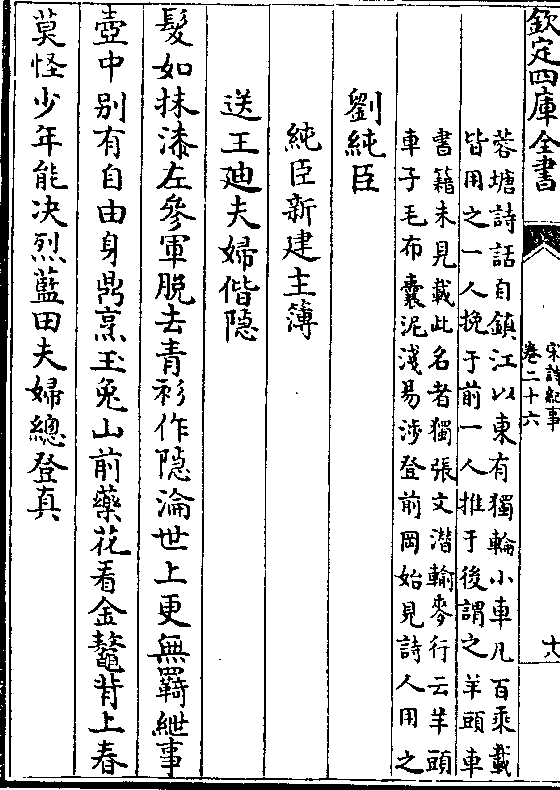 欽定四庫全書
宋詩紀事
卷二十六
蓉塘詩話自鎮江以東有獨輪小車凡百乘載
皆用之一人挽于前一人推于後謂之羊頭車
書籍未見載此名者獨張文潛輸麥行云羊頭
車子毛布囊泥淺易涉登前岡始見詩人用之
劉純臣
純臣新建主簿
送王廸夫婦偕隠
髮如抹漆左參軍脱去青衫作隠淪世上更無羇紲事
壺中别有自由身鼎烹玉兔山前藥花看金鼇背上春
莫怪少年能决烈藍田夫婦總登真